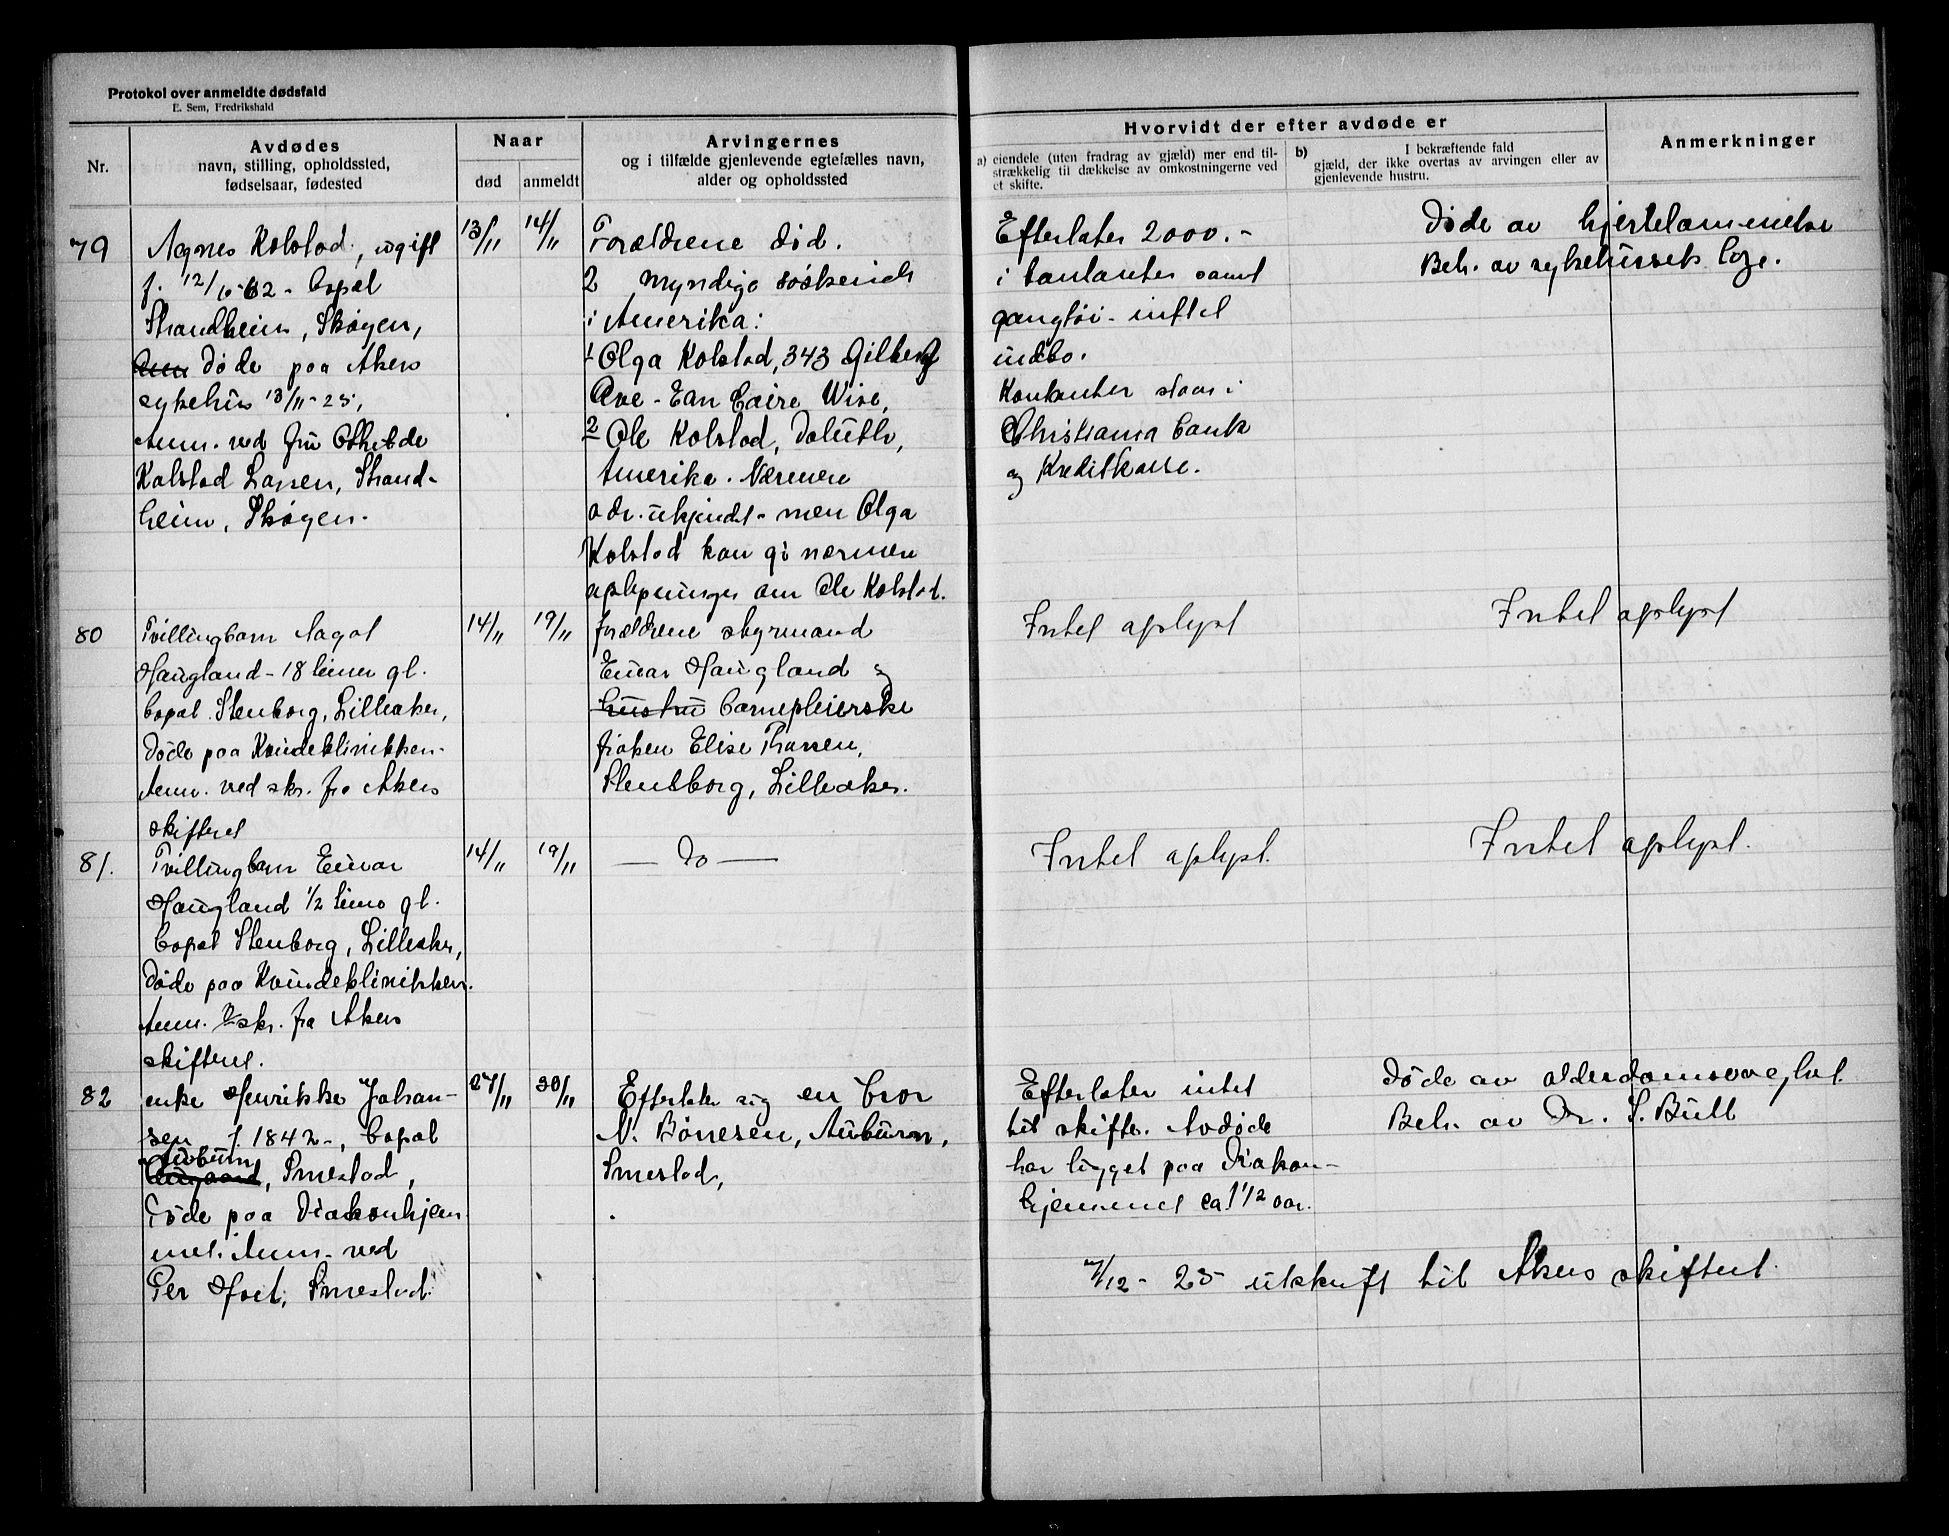 Protokol over anmeldte dødsfald
E. Sem, Fredrikshald
Nr.
Avdødes
navn, stilling, opholdssted,
fødselsaar, fødested
Naar
død
anmeldt
Arvingernes
og i tilfælde gjenlevende egtefælles navn,
alder og opholdssted
Hvorvidt der efter avdøde er
a) eiendele (uten fradrag av gjæld) mer end til-
strækkelig til dækkelse av omkostningerne ved
et skifte.
b) I bekræftende fald
gjæld, der ikke overtas av arvingen eller av
gjenlevende hustru.
Anmerkninger
79
Agnes Kolstad, ugift
f. 12/6-62 - bopæl
Strandheim, Skøyen,
døde paa Akers
sykehus 13/11-25,
Anm. ved fru Othilde
Kolstad Larsen, Strand-
heim, Skøyen.
13/11
14/11
Forældrene død.
2 myndige søskende
i Amerika:
1 Olga Kolstad, 343 Gilbert
Ave - Eau Caire Wise,
2 Ole Kolstad, Doluth,
Amerika. Nærmere
adr. ukjendt - men Olga
Kolstad kan gi nærmere
oplysninger om Ole Kolstad.
Efterlater 2000.-
i kontanter samt
gangtøi - intet
indbo.
Kontanter staar i
Christiania bank
og Kreditkasse.
Døde av hjertelammelse
Beh. av sykehusets læge.
80
Tvillingbarn Aagot
Haugland - 18 timer gl.
bopæl Stenborg, Lilleaker,
døde paa Kvindeklinikken.
Anm. ved skr. fra Akers
skifteret
14/11
19/11
forældrene styrmand
Einar Haugland og
hustru barnepleierske
frøken Elise Thorsen,
Stenborg, Lilleaker.
Intet oplyst
Intet oplyst
81.
Tvillingbarn Einar
Haugland 1/2 time gl.
bopæl Stenborg, Lilleaker,
døde paa Kvindeklinikken.
Anm. v skr. fra Akers
skifteret.
14/11
19/11
— Do —
Intet oplyst.
Intet oplyst.
82
enke Henrikke Johan-
sen f. 1842 -, bopæl
Auburn
, Smestad,
døde paa Diakonhjem-
met. Anm. ved
Per Hoel, Smestad.
27/11
30/11
Efterlater sig en bror
N. Bönesen, Auburn,
Smestad,
Efterlater intet
til skifte. Avdøde
har ligget paa Diakon-
hjemmet ca. 1 1/2 aar.
Døde av alderdomssvaghet.
Beh. av Dr. S. Bull
7/12 - 25 utskrift til Akers skifteret.